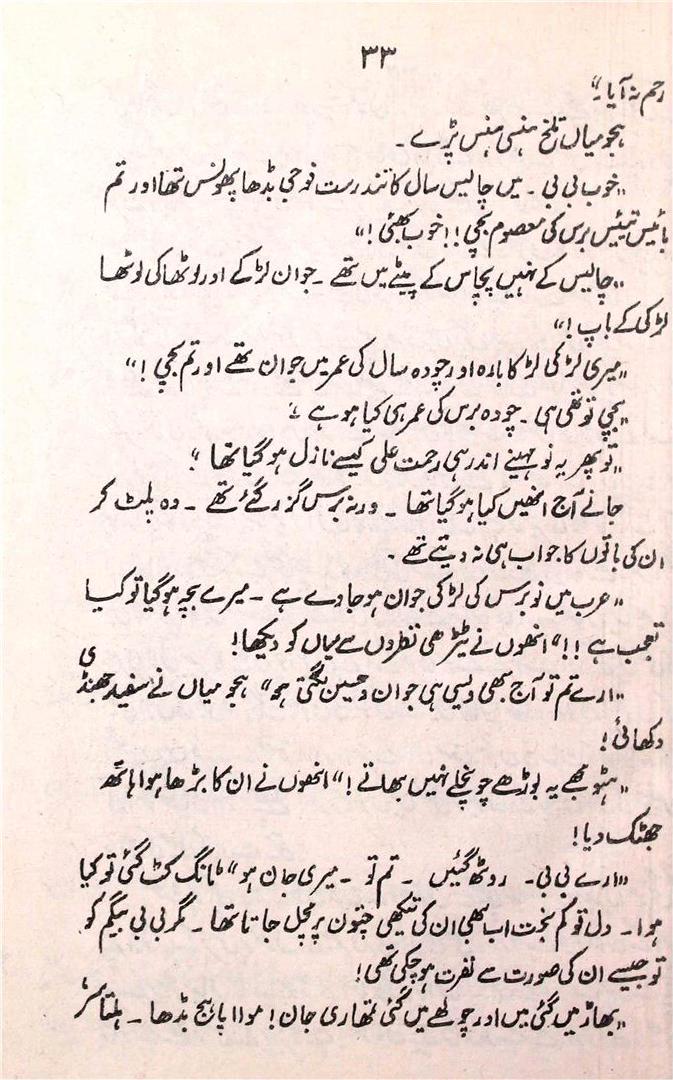 ۳۳
رحم نہ آیا۔"
ہجو میاں تلخ ہنسی ہنس پڑے۔
"خوب بی بی۔ میں چالیس سال کا تندرست فوجی بڈھا پھونس تھا اور تم
بائیس تیئس برس کی معصوم بچی!! خوب بھئی!"
"چالیس کے نہیں پچاس کے پیٹے میں تھے۔ جوان لڑکے اور لوٹھا کی لوٹھا
لڑکی کے باپ!"
"میری لڑکی لڑکا بارہ اور چودہ سال کی عمر میں جوان تھے اور تم بچی!"
"بچی تو تھی ہی۔ چودہ برس کی عمر ہی کیا ہو ہے"
"تو پھر یہ نو مہینے اندر ہی رحمت علی کیسے نازل ہو گیا تھا"
جانے آج انھیں کیا ہو گیا تھا۔ ورنہ برس گزر گئے تھے۔ وہ پلٹ کر
ان کی باتوں کا جواب ہی نہ دیتے تھے۔
"عرب میں نو برس کی لڑکی جوان ہو جاوے ہے۔ میرے بچہ ہو گیا تو کیا
تعجب ہے!!" انھوں نے ٹیڑھی نظروں سے میاں کو دیکھا!
"ارے تم تو آج بھی ویسی ہی جوان و حسین لگتی ہو" ہجو میاں نے سفید جھنڈی
دکھائی!
"ہٹو مجھے یہ بوڑھے چونچلے نہیں بھاتے!" انھوں نے ان کا بڑھا ہوا ہاتھ
جھٹک دیا!
"ارے بی بی۔ روٹھ گئیں۔ تم تو۔ میری جان ہو" ٹانگ کٹ گئی تو کیا
ہوا۔ دل تو کم بخت اب بھی ان کی تیکھی چتون پر مچل جاتا تھا۔ مگر بی بی بیگم کو
تو جیسے ان کی صورت سے نفرت ہو چکی تھی!
"بھاڑ میں گئی میں اور چولھے میں گئی تمھاری جان! موا اپاہج بڈھا۔